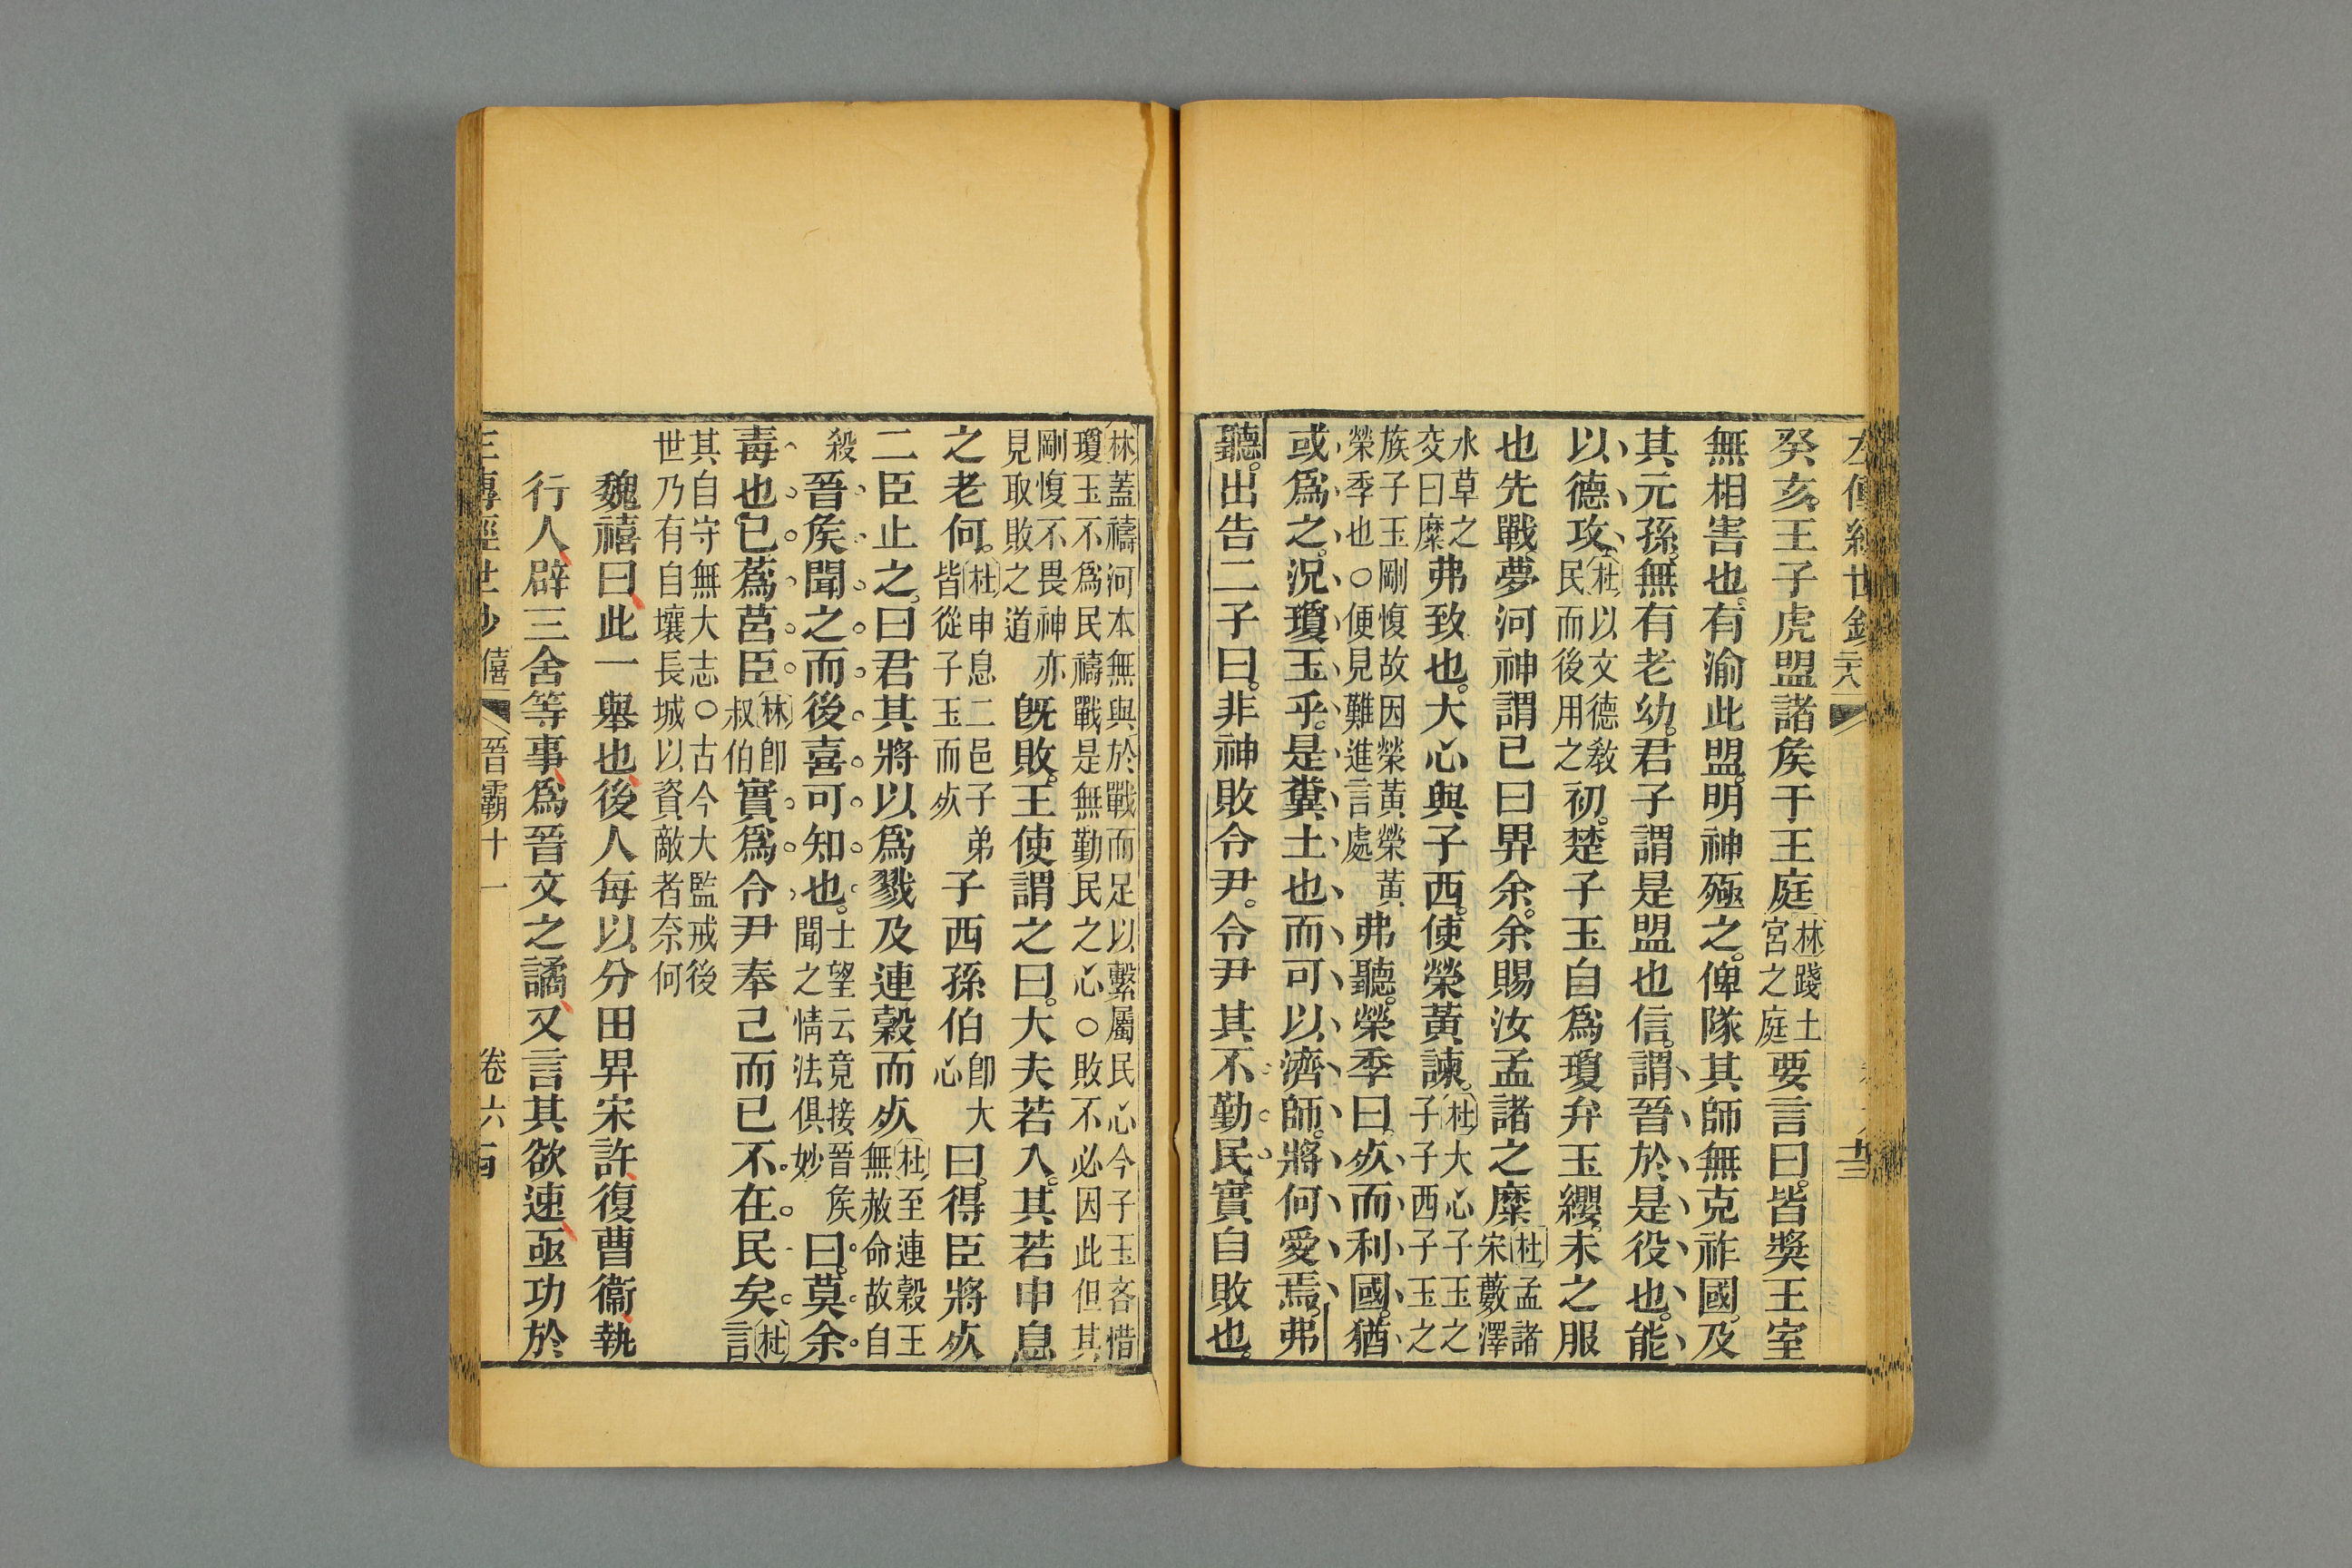 左傳經世鈔
癸亥王子虎盟諸矦于王庭林踐土宮之庭要言曰皆獎王室
無相害也有渝此盟明神殛之俾隊其師無克祚國及
其元孫無有老幼君子謂是盟也信謂晉於是役也能
以德攻杜以文德敎民而後用之初楚子玉自爲瓊弁玉纓未之服
也先戰夢河神謂已曰畀余余賜汝孟諸之麋杜孟諸宋藪澤
水草之交曰麋弗致也大心與子西使榮黃諫杜大心子玉之子子西子玉之
族子玉剛愎故因榮黃榮黃榮季也○便見難進言處弗聽榮季曰㱙而利國猶
或爲之況瓊玉乎是糞土也而可以濟師將何愛焉弗
聽出告二子曰非神敗令尹令尹其不勤民實自敗也
林蓋禱河本無與於戰而足以繫屬民心今子玉吝惜瓊玉不爲民禱戰是無勤民之心○敗不必因此但其
剛愎不畏神亦見取敗之道旣敗王使謂之曰大夫若入其若申息
之老何杜申息二邑子弟皆從子玉而㱙子西孫伯卽大心曰得臣將㱙
二臣止之曰君其將以爲戮及連穀而㱙杜至連穀王無赦命故自
殺晉矦聞之而後喜可知也士望云竟接晉矦聞之情法俱妙曰莫余
毒也已蔿莒臣林卽叔伯實爲令尹奉己而已不在民矣杜言
其自守無大志○古今大監戒後世乃有自壞長城以資敵者奈何
魏禧曰此一舉也後人每以分田畀宋許復曹衞執
行人辟三舍等事爲晉文之譎又言其欲速亟功於
僖 晉霸十一 卷六